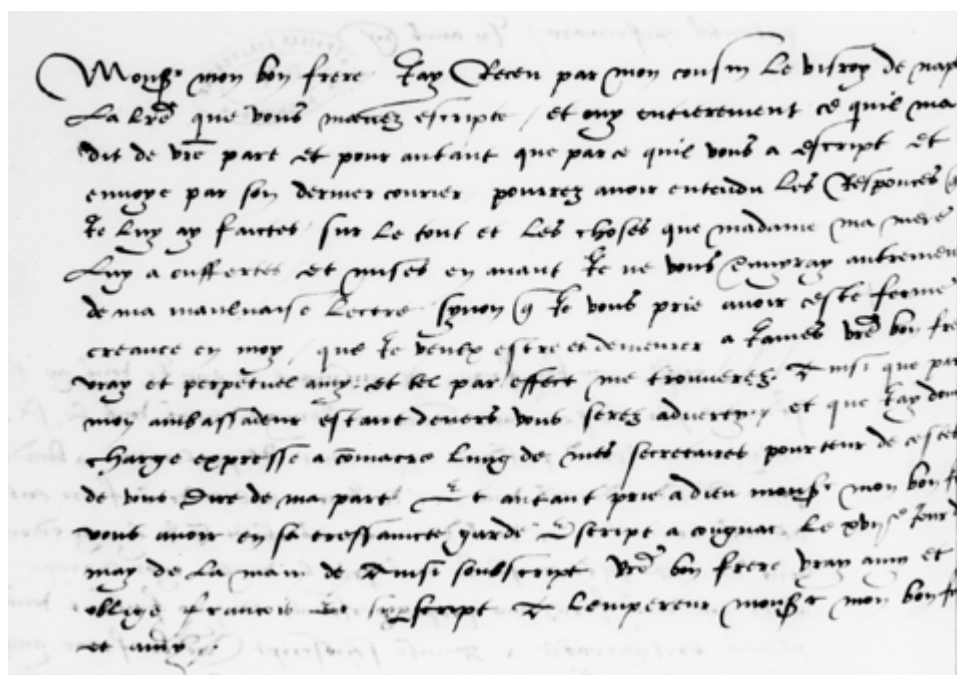 Mons.r mon bon frere Jay Receu par mon cousin Le visroy de nap
La lrē que vous mavez escripte / et ouy entierement ce quil ma
dit de vrē part et pour autant que par ce quil vous a escript et
envoye par son dernier courier pourrez avoir entendu Les Responces q
Je Luy ay faictes sur Le tout et Les choses que madame ma mere
Luy a ouffertes et mises en avant Je ne vous autremen
de ma maulvaise Lectre synon q Je vous prie avoir ceste ferme
creance en moy / que Je veulx estre et demeurer a Jamais vrē bon fre
vray et perpetuel amy et tel par effect me trouverez Ainsi que par
mon ambassadeur estant devers vous serez adverty / et que Jay
charge expresse a Lung de mes secretaires pourteur de ceste
de vous Dire de ma part Et autant prie a dieu mons.r mon bon f
vous avoir en sa tressaincte garde Escript a cougnac Le xvij.e Jour
may de La main de Ainsi soubscript vrē bon frere vray amy et
oblige francois Et script A Lempereur mons.r mon bon f
et amy